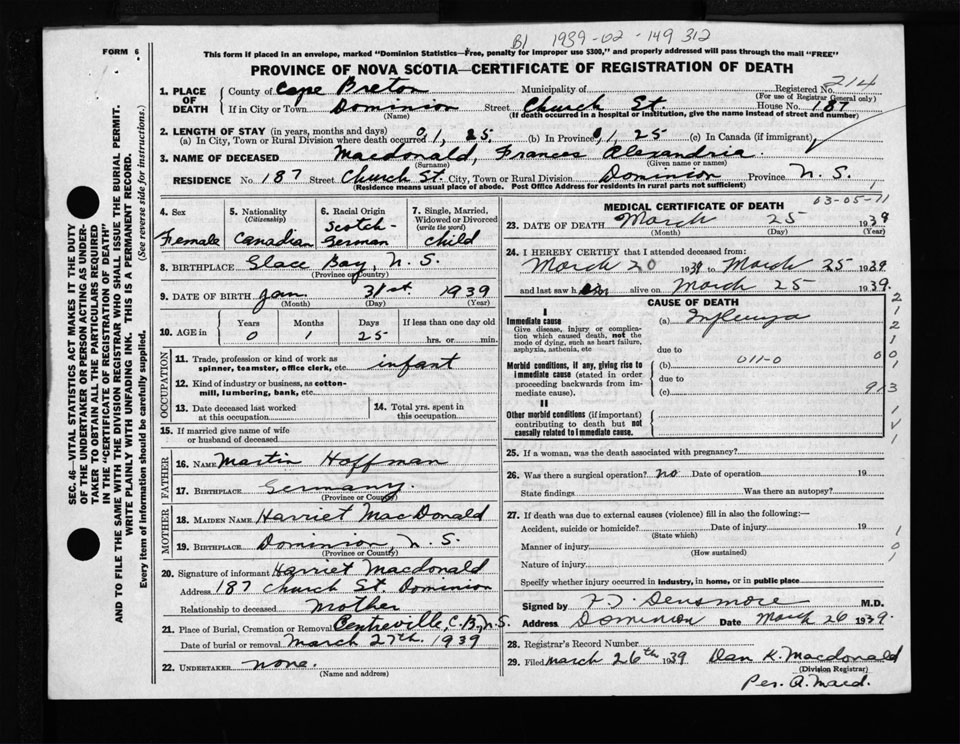 B1 1939-02-149 312
FORM 6
This form if placed in an envelope, marked "Dominion Statistics—Free, penalty for improper use $300," and properly addressed will pass through the mail "FREE"
PROVINCE OF NOVA SCOTIA—CERTIFICATE OF REGISTRATION OF DEATH
SEC. 46—VITAL STATISTICS ACT MAKES IT THE DUTY
OF THE UNDERTAKER OR PERSON ACTING AS UNDER-
TAKER TO OBTAIN ALL THE PARTICULARS REQUIRED
IN THE "CERTIFICATE OF REGISTRATION OF DEATH"
AND TO FILE THE SAME WITH THE DIVISION REGISTRAR WHO SHALL ISSUE THE BURIAL PERMIT.
WRITE PLAINLY WITH UNFADING INK. THIS IS A PERMANENT RECORD.
Every item of information should be carefully supplied. (See reverse side for instructions.)
1. PLACE OF DEATH
County of Cape Breton Municipality of Registered No. 214
(For use of Registrar General only)
If in City or Town Dominion Street Church St. House No. 187
(Name) (If death occurred in a hospital or institution, give the name instead of street and number)
2. LENGTH OF STAY (in years, months and days)
(a) In City, Town or Rural Division where death occurred 0, 1, 25 (b) In Province 0, 1 25 (c) In Canada (if immigrant)
3. NAME OF DECEASED Macdonald, Francis Alexandria.
(Surname) (Given name or names)
RESIDENCE No. 187 Street Church St. City, Town or Rural Division Dominion Province N.S.
(Residence means usual place of abode. Post Office Address for residents in rural parts not sufficient)
4. Sex Female
5. Nationality (Citizenship) Canadian
6. Racial Origin Scotch-German
7. Single, Married, Widowed or Divorced (write the word) child
8. BIRTHPLACE Glace Bay, N.S.
(Province or Country)
9. DATE OF BIRTH Jan. 31st. 1939
(Month) (Day) (Year)
10. AGE in Years Months Days If less than one day old
0 1 25 hrs. or min.
OCCUPATION
11. Trade, profession or kind of work as spinner, teamster, office clerk, etc. infant
12. Kind of industry or business, as cotton-mill, lumbering, bank, etc.
13. Date deceased last worked at this occupation
14. Total yrs. spent in this occupation
15. If married give name of wife or husband of deceased
FATHER
16. NAME Martin Hoffman
17. BIRTHPLACE Germany.
(Province or County)
MOTHER
18. MAIDEN NAME Harriet MacDonald
19. BIRTHPLACE Dominion N.S.
(Province or County)
20. Signature of informant Harriet Macdonald
Address 187 Church St. Dominion
Relationship to deceased Mother
21. Place of Burial, Cremation or Removal Centreville, C.B., N.S.
Date of burial or removal March 27th, 1939
22. UNDERTAKER none.
(Name and address)
MEDICAL CERTIFICATE OF DEATH 63-05-71
23. DATE OF DEATH March 25 1939
(Month) (Day) (Year)
24. I HEREBY CERTIFY that I attended deceased from:
March 20 1939 to March 25 1939
and last saw h alive on March 25 1939.
CAUSE OF DEATH
I
Immediate cause (a) Influenza
Give disease, injury or complication which caused death, not the mode of dying, such as heart failure, asphyxia, asthenia, etc
due to
Morbid conditions, if any, giving rise to immediate cause (stated in order proceeding backwards from immediate cause).
(b) 011-0
due to
(c)
II
Other morbid conditions (if important) contributing to death but not causally related to immediate cause.
25. If a woman, was the death associated with pregnancy?
26. Was there a surgical operation? no Date of operation 19
State findings Was there an autopsy?
27. If death was due to external causes (violence) fill in also the following:—
Accident, suicide or homicide? Date of injury 19
(State which)
Manner of injury
(How sustained)
Nature of injury
Specify whether injury occurred in industry, in home, or in public place
Signed by Densmore M.D.
Address Dominion Date March 26 1939.
28. Registrar's Record Number
29. Filed March 26th 1939 Dan K. Macdonald
(Division Registrar)
Per. A. Macd.